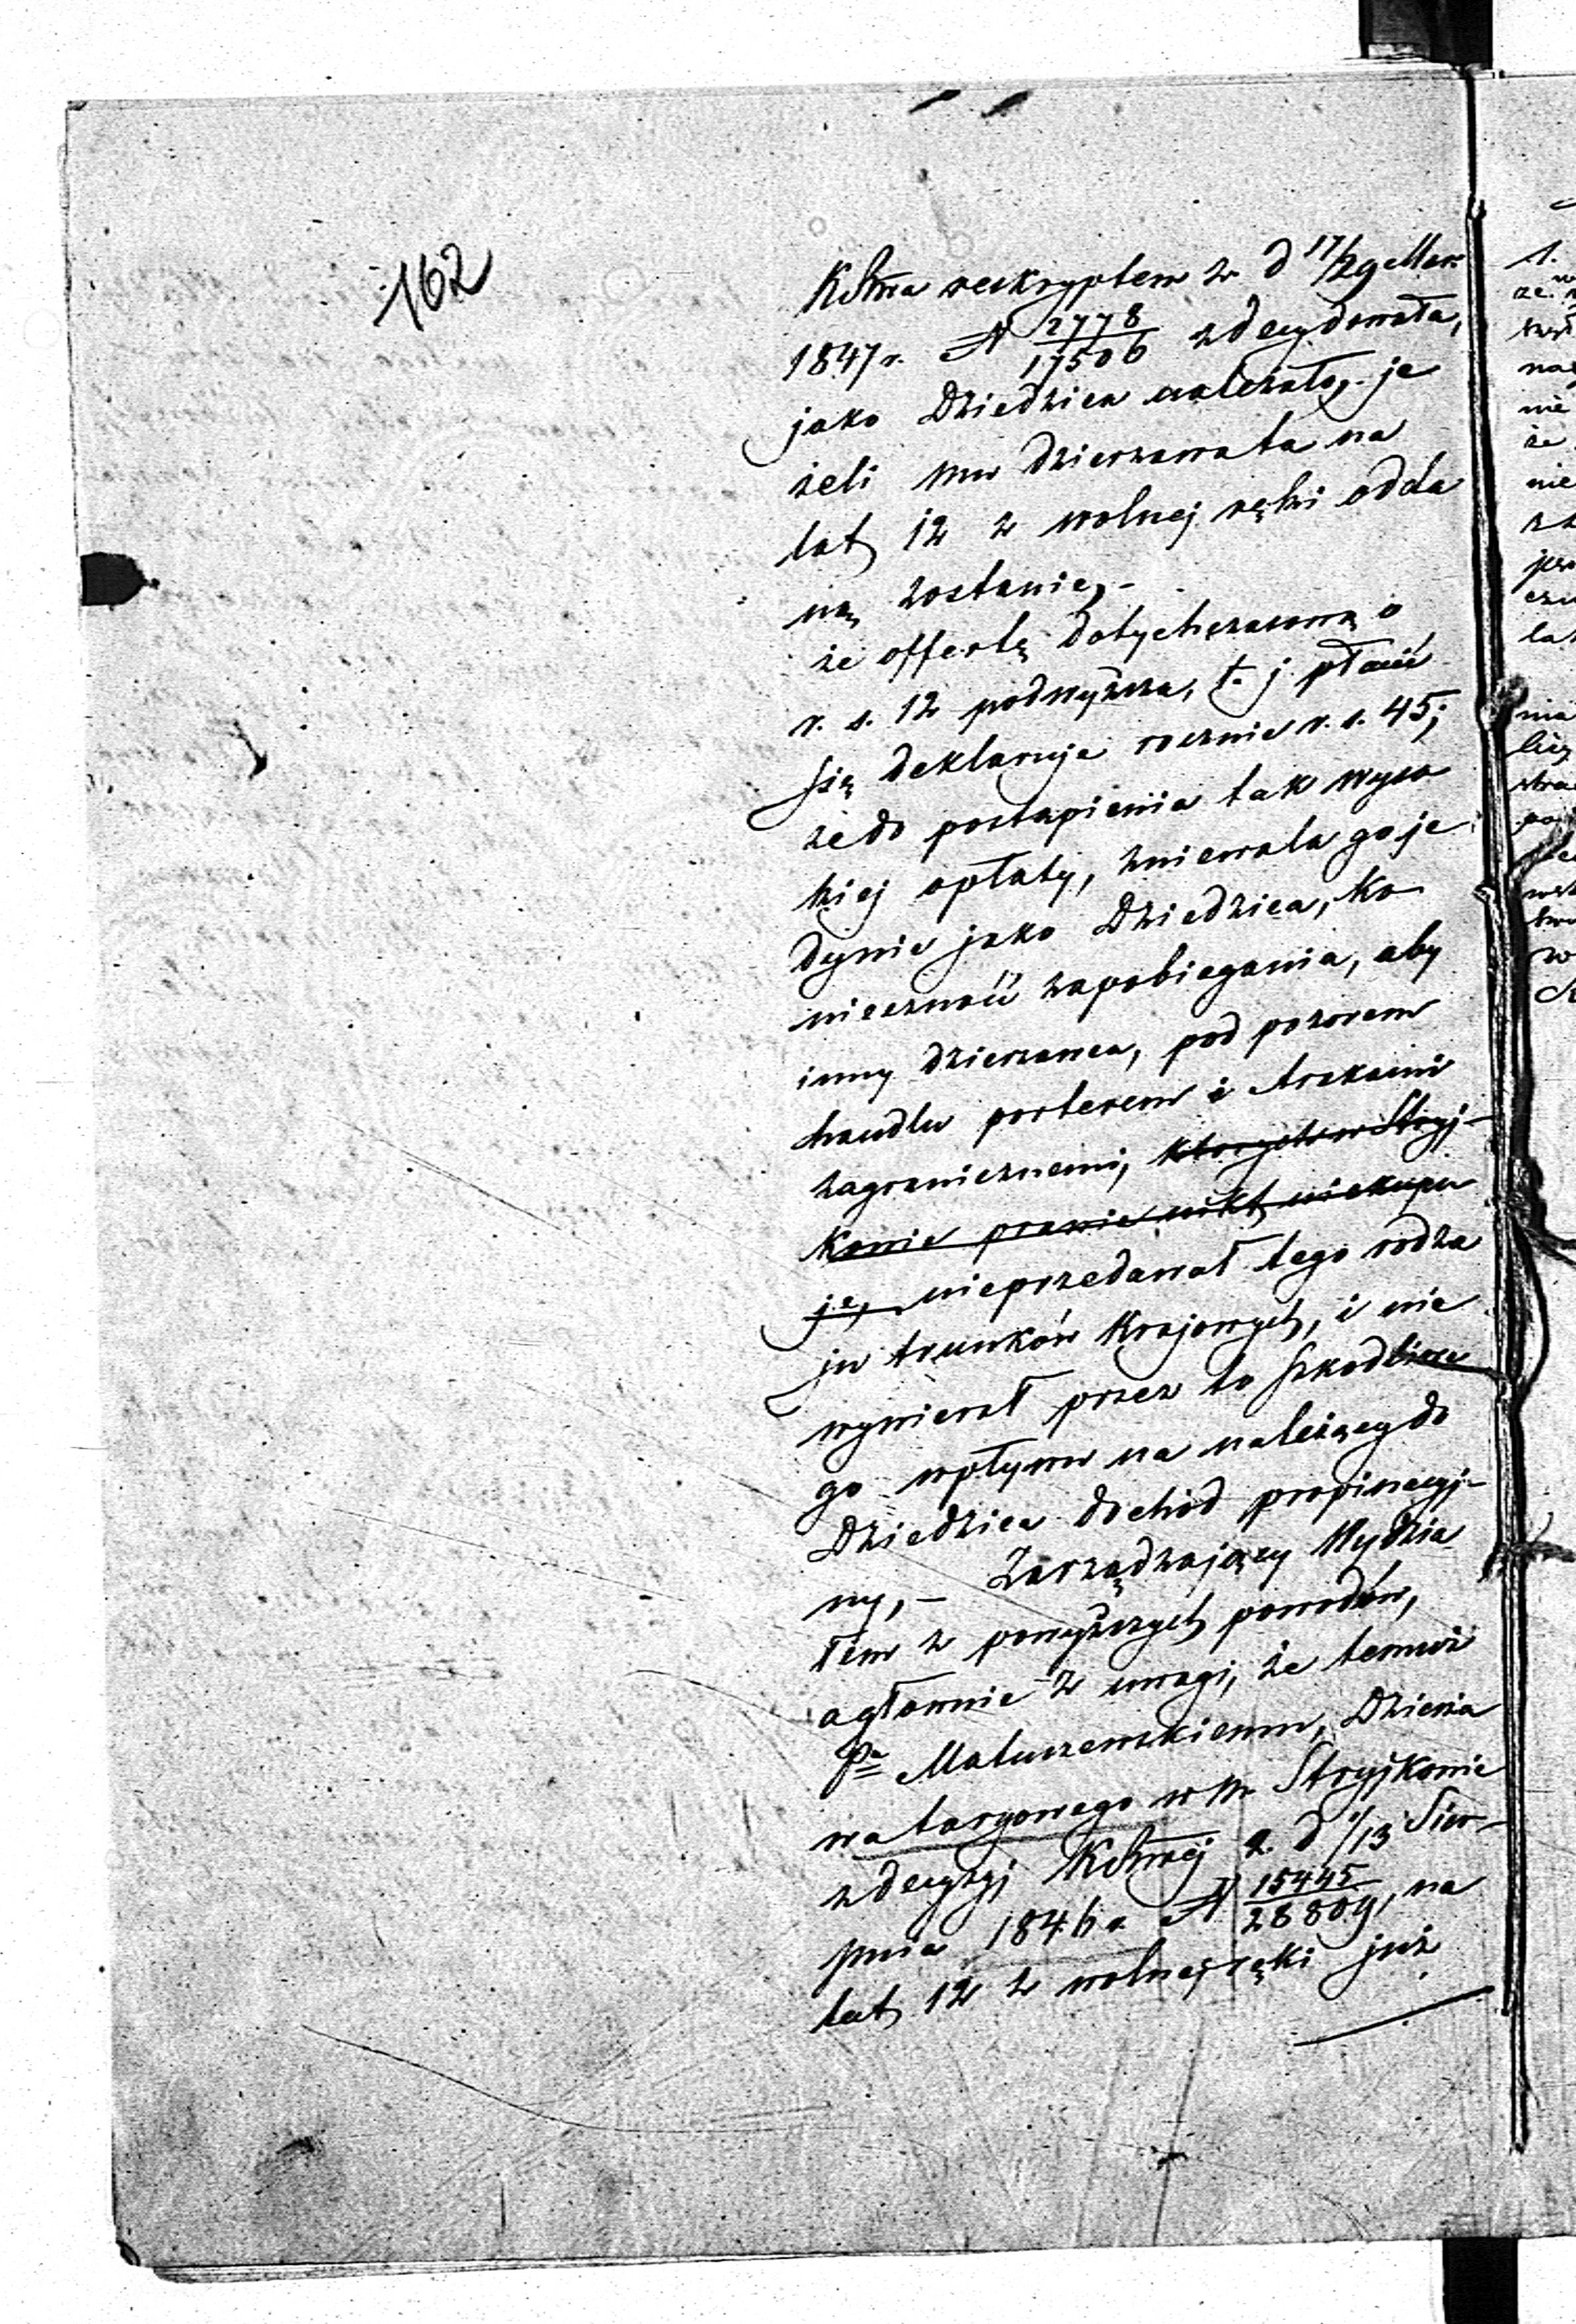 162
KRSWa reskryptem z d 17/29 Mar:
1847 r. N 2778/17506 zdecydowała,
jako Dziedzica należało, je
żeli mu dzierzawa ta na
lat 12 z wolnej ręki odda
ną zostanie, -
że offertę dotychczasową o
r. s. 12 podwyższa, t. j. płacić
się deklaruje rocznie r. s. 45;
że do postąpienia tak wyso
kiej opłaty, zniewala go je
dynie jako Dziedzica, ko
nieczność zapobiegania, aby
inny dzierzawca, pod pozorem
handlu porterem i Arakami
zagranicznemi, których w Stryj-
kowie prawie nikt niekupu
je, nieprzedawał tego rodza
ju trunków Krajowych, i nie
wywierał przez to szkodliwe
go wpływu na należący do
Dziedzica dochód propinacyj-
ny, - Zarządzający Wydzia
łem z powyższych powodów,
a głównie z uwagi, że temuż
Pu Matuszewskiemu, Dzierża
wa targowego w M. Stryjkowie
z decyzyi KRSWej z d 1/13 Sier-
pnia 1846 r. N 15445/28809, na
lat 12 z wolnej ręki już